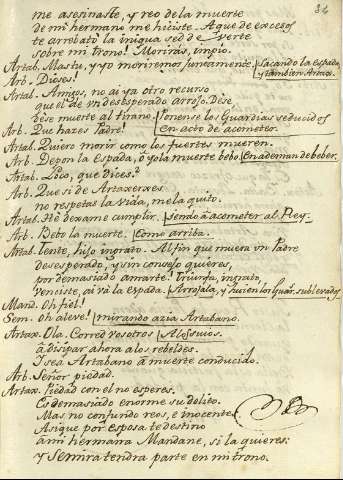 32
me asesinaste, y reo de la muerte
de mi hermano me hiciste. A que de excesos
te arrebató la iniqua sed de verte
sobre mi trono! Morirás, impio.
Artab. Mas tu, y yo moriremos juntamente. Sacando la espada,
y tambien Artax.
Arb. Dioses!
Artab. Amigos, no ai ya otro recurso
que el de vn desesperado arrojo. Dese,
dese muerte al tirano. Ponense los Guardias seducidos
en acto de acometer.
Arb. Que hazes Padre!
Artab. Quiero morir como los fuertes mueren.
Arb. Depon la espada, ó yo la muerte bebo. En ademan de beber.
Artab. Loco, que dices?
Arb. Que si de Artaxerxes
no respetas la vida, me la quito.
Artab. He dexame cumplir. Yendo á acometer al Rey.
Arb. Bebo la muerte. Como arriba.
Artab. Tente, hijo ingrato. Al fin que muera vn Padre
desesperado, y sin consejo quieres,
por demasiado amarte! Triunfa, ingrato,
venciste, ai va la espada. Arrojala, y huien los Guar. sublevados
Mand. Oh fiel!
Sem. Oh aleve! mirando azia Artabano.
Artax. Ola. Corred vosotros Alos suios.
á disipar ahora a los rebeldes.
I sea Artabano á muerte conducido.
Arb. Señor piedad.
Artax. Piedad con el no esperes.
Es demasiado enorme su delito.
Mas no confundo reos, e inocentes.
Asi que por esposa te destino
a mi hermana Mandane, si la quieres:
Y Semira tendra parte en mi trono.